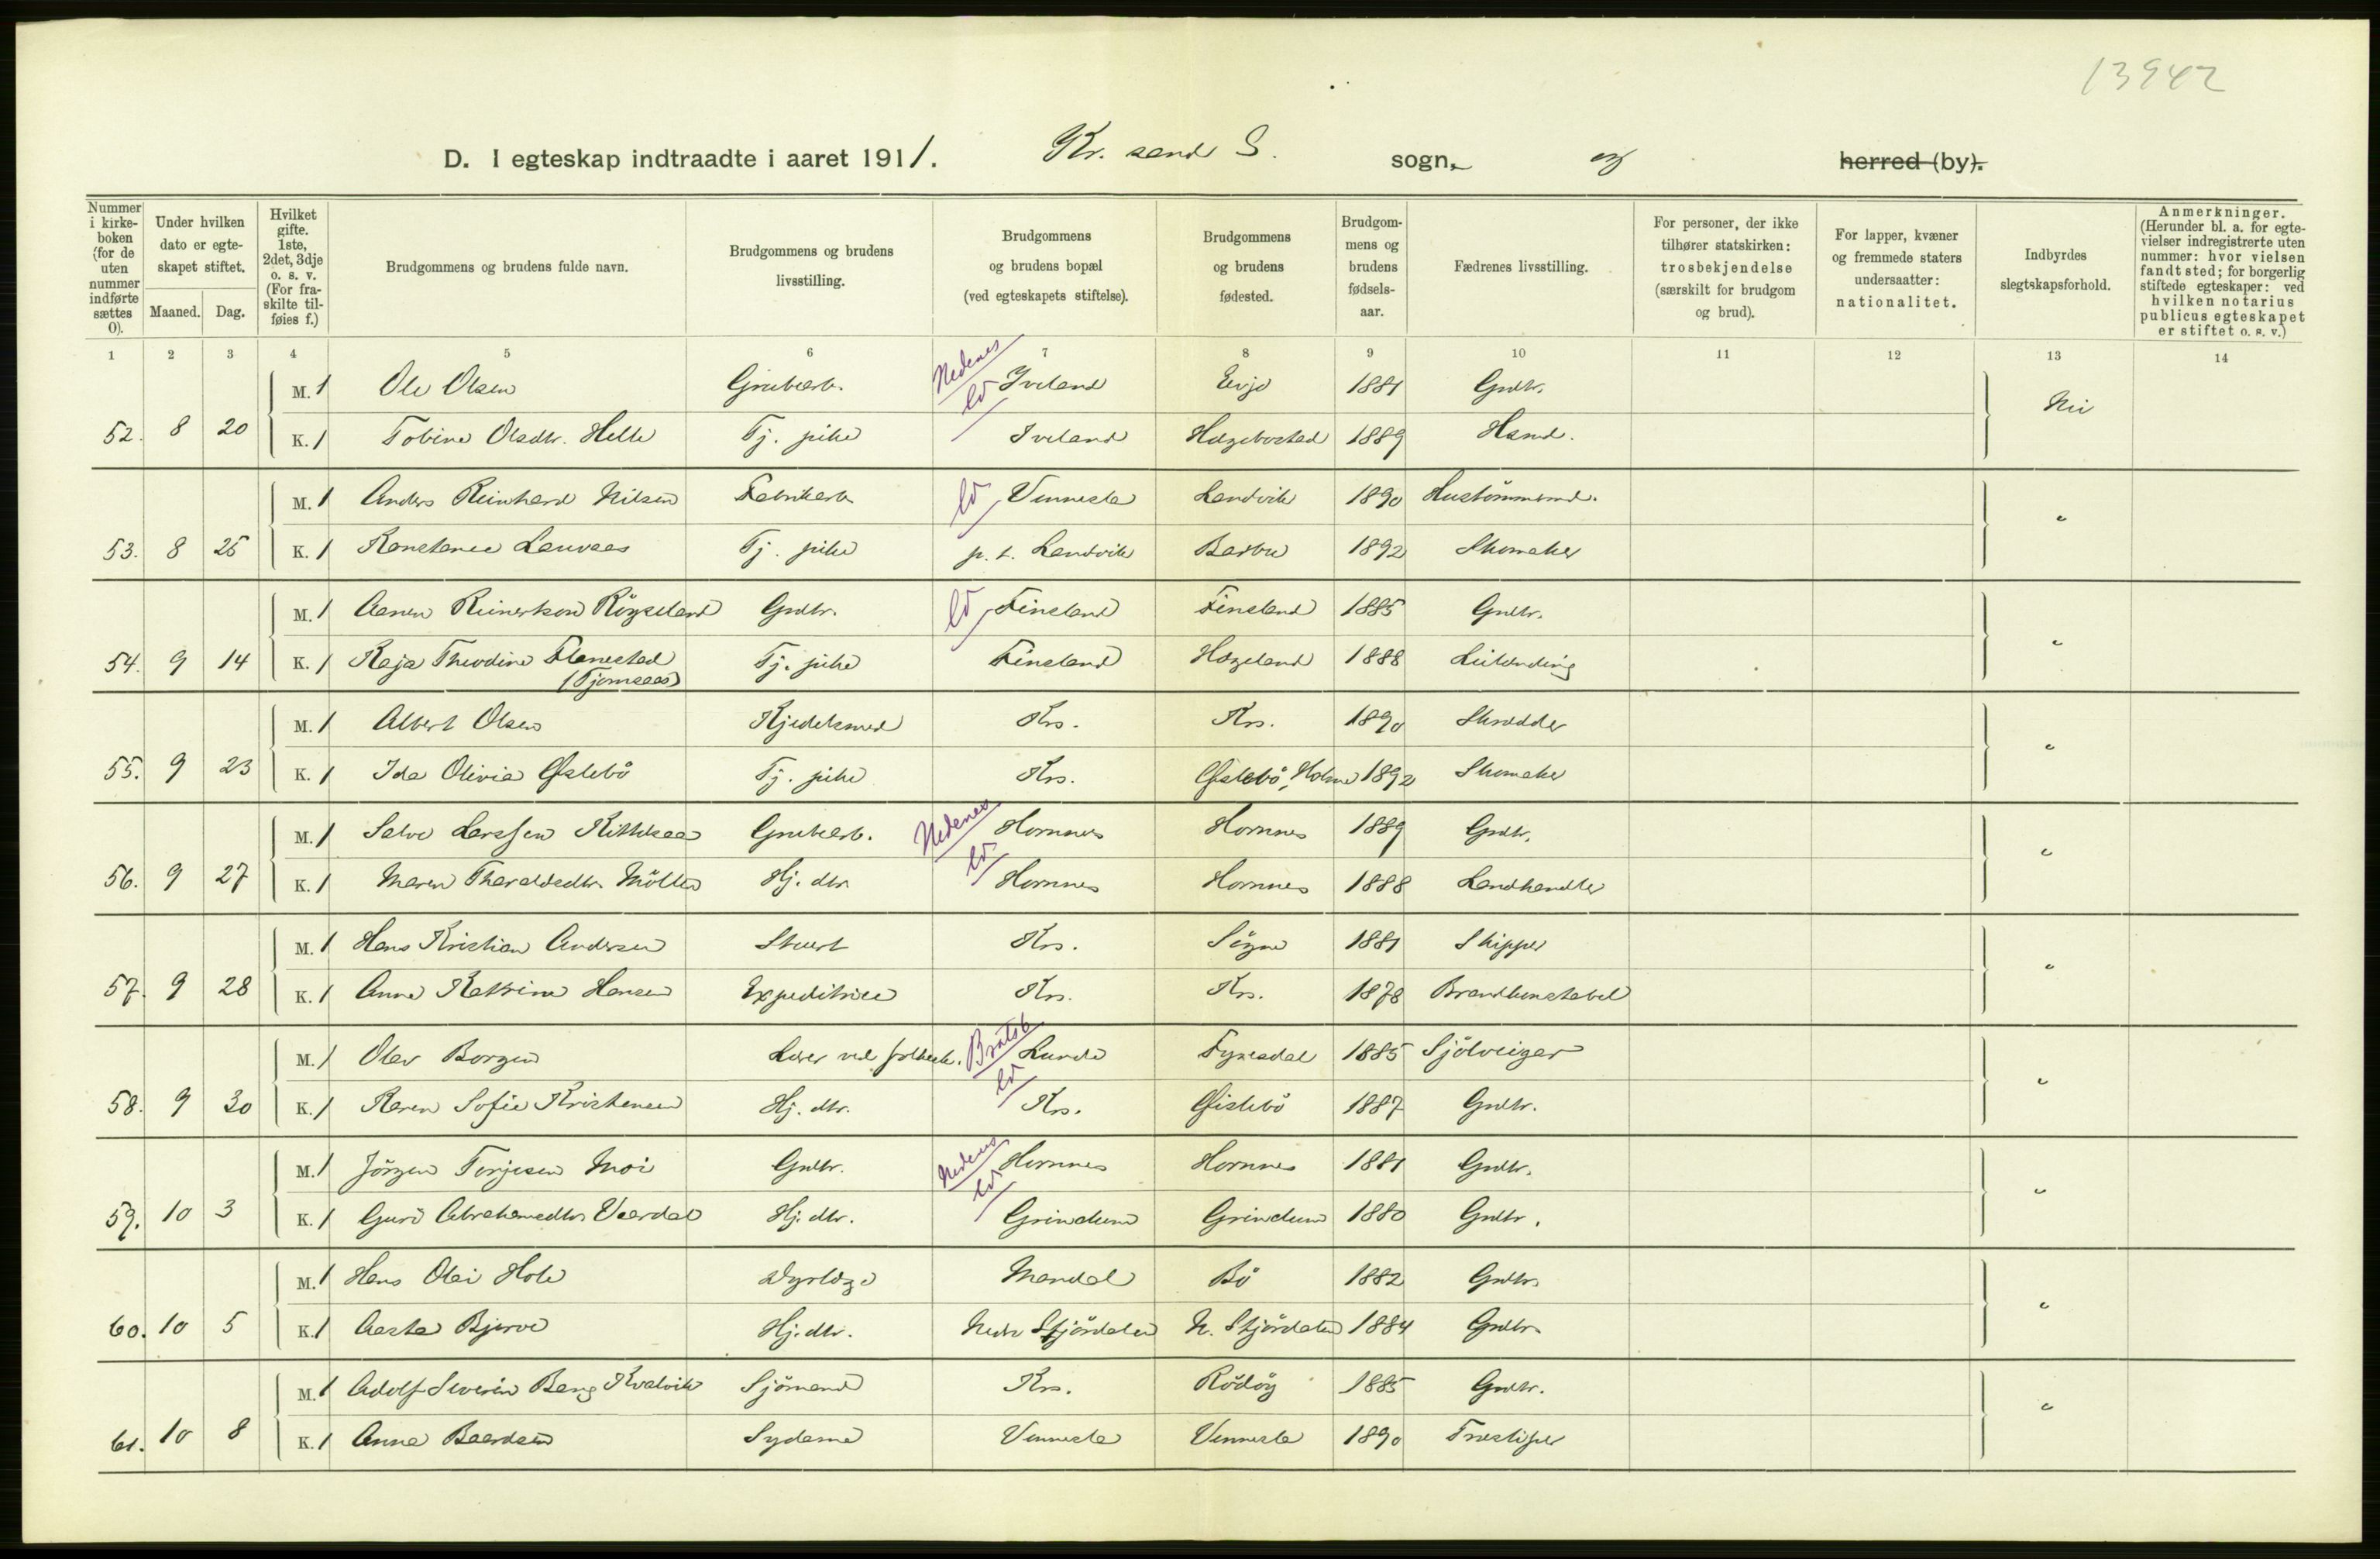 13942
D. I egteskap indtraadte i aaret 1911. Kr. sand S. sogn, og herred (by).
Nummer i kirkeboken (for de uten nummer indførte sættes 0).
Under hvilken dato er egteskapet stiftet.
Maaned. Dag.
Hvilket gifte. 1ste, 2det, 3dje o. s. v. (For fraskilte tilføies f.)
Brudgommens og brudens fulde navn.
Brudgommens og brudens livsstilling.
Brudgommens og brudens bopæl (ved egteskapets stiftelse).
Brudgommens og brudens fødested.
Brudgommens og brudens fødselsaar.
Fædrenes livsstilling.
For personer, der ikke tilhører statskirken: trosbekjendelse (særskilt for brudgom og brud).
For lapper, kvæner og fremmede staters undersaatter: nationalitet.
Indbyrdes slegtskapsforhold.
Anmerkninger. (Herunder bl. a. for egtevielser indregistrerte uten nummer: hvor vielsen fandt sted; for borgerlig stiftede egteskaper: ved hvilken notarius publicus egteskapet er stiftet o. s. v.)
1 2 3 4 5 6 7 8 9 10 11 12 13 14
M. 1 Ole Olsen Grubearb. Nedenes Iveland Evje 1881 Grdbr. Nei
52. 8 20 K. 1 Tobine Olsdtr. Helle Tj. pike Iveland Hægebostad 1889 Hand.
M. 1 Anders Reinhard Nilsen Fabrikarb. Vennesla Landvik 1890 Hustömmermd. "
53. 8 25 K. 1 Konstance Lauvaas Tj. pike p. t. Landvik Barbu 1892 Skomaker
M. 1 Aanen Reinertson Röyseland Grdbr. Finsland Finsland 1885 Grdbr. "
54. 9 14 K. 1 Kaja Theodine Flanestad Tj. pike Finsland Hægeland 1888 Leilending
(Tjomsaas)
M. 1 Albert Olsen Kjedelsmed Krs. Krs. 1890 Skrædder "
55. 9 23 K. 1 Ida Olivia Øislebö Tj. pike Krs. Øislebö, Holme 1892 Skomaker
M. 1 Salve Larssen Kittilsaa Grubearb. Nedenes Hornnes Hornnes 1889 Grdbr. "
56. 9 27 K. 1 Maren Tharaldsdtr. Möller Hj. dtr. Hornnes Hornnes 1888 Landhandler
M. 1 Hans Kristian Andersen Stuert Krs. Sögne 1881 Skipper "
57. 9 28 K. 1 Anna Katrine Hansen Expeditrice Krs. Krs. 1878 Brandkonstabel
M. 1 Olav Borgen Lærer ved folkesk. Bratsb Lunde Fyresdal 1885 Sjölveigar "
58. 9 30 K. 1 Karen Sofie Kristensen Hj. dtr. Krs. Øislebö 1887 Grdbr.
M. 1 Jörgen Torjesen Moi Grdbr. Nedenes Hornnes Hornnes 1881 Grdbr. "
59. 10 3 K. 1 Guro Abrahamsdtr. Vaardal Hj. dtr. Grindum Grindum 1880 Grdbr.
M. 1 Hans Olai Hole Dyrlæge Mandal Bö 1882 Grdbr. "
60. 10 5 K. 1 Aasta Bjerve Hj. dtr. Nedr Stjördalen N. Stjördalen 1884 Grdbr.
M. 1 Adolf Severin Bang Kvalvik Sjömand Krs. Rödöy 1885 Grdbr. "
61. 10 8 K. 1 Anna Baardsen Sydame Vennesla Vennesla 1890 Træsliper